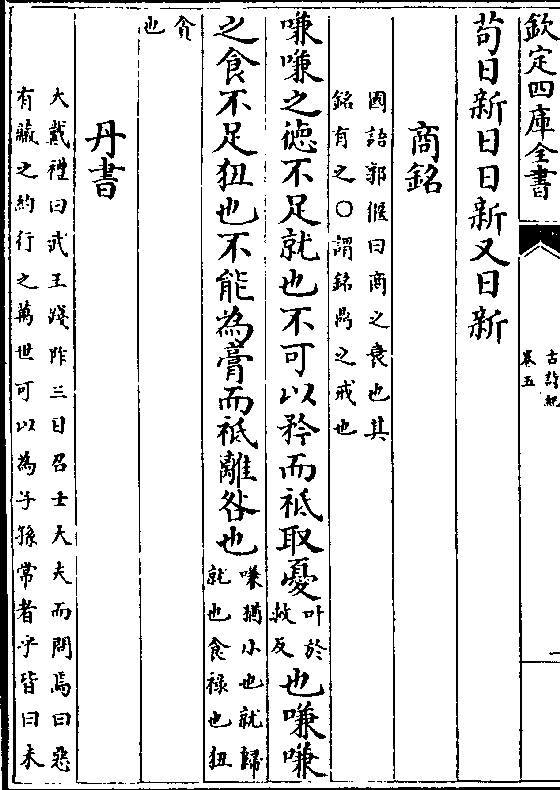 欽定四庫全書
古詩紀
卷五
一
苟日新日日新又日新
商銘
國語郭偃曰商之衰也其
銘有之○謂銘鼎之戒也
嗛嗛之德不足就也不可以矜而祗取憂
叶於
救反
也嗛嗛
之食不足狃也不能為膏而祗離咎也
嗛猶小也就歸
就也食祿也狃
貪
也
丹書
大戴禮曰武王踐阼三日召士大夫而問焉曰惡
有藏之約行之萬世可以為子孫常者乎皆曰未